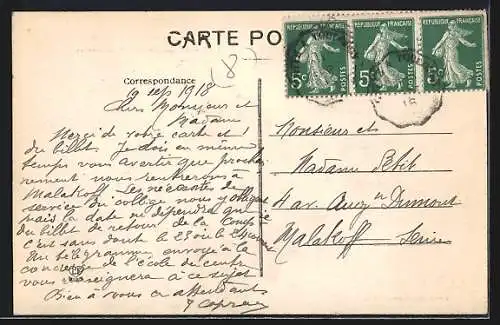 CARTE PO
Correspondance
(8-
19 sep 1918
Chers Monsieur et
Madame
Merci de votre carte et
du billet. Je dois en même
temps vous avertir que proche-
rement nous rentrerons à
Malakoff Les nécessités de
service du collège nous y obligent
mais la date ne dépendra que
du billet de retour de la
c'est sans doute le 28 ou le 29
Un télégramme envoyé à la
concierge de l'école du centre
vous renseignera à ce sujet
Bien à vous et attendant
Monsieur et
Madame Petit
4 av. Dumont
Malakoff Seine
REPUBLIQUE FRANÇAISE
5c
POSTES
REPUBLIQUE FRANÇAISE
5c
POSTES
REPUBLIQUE FRANÇAISE
5c
POSTES